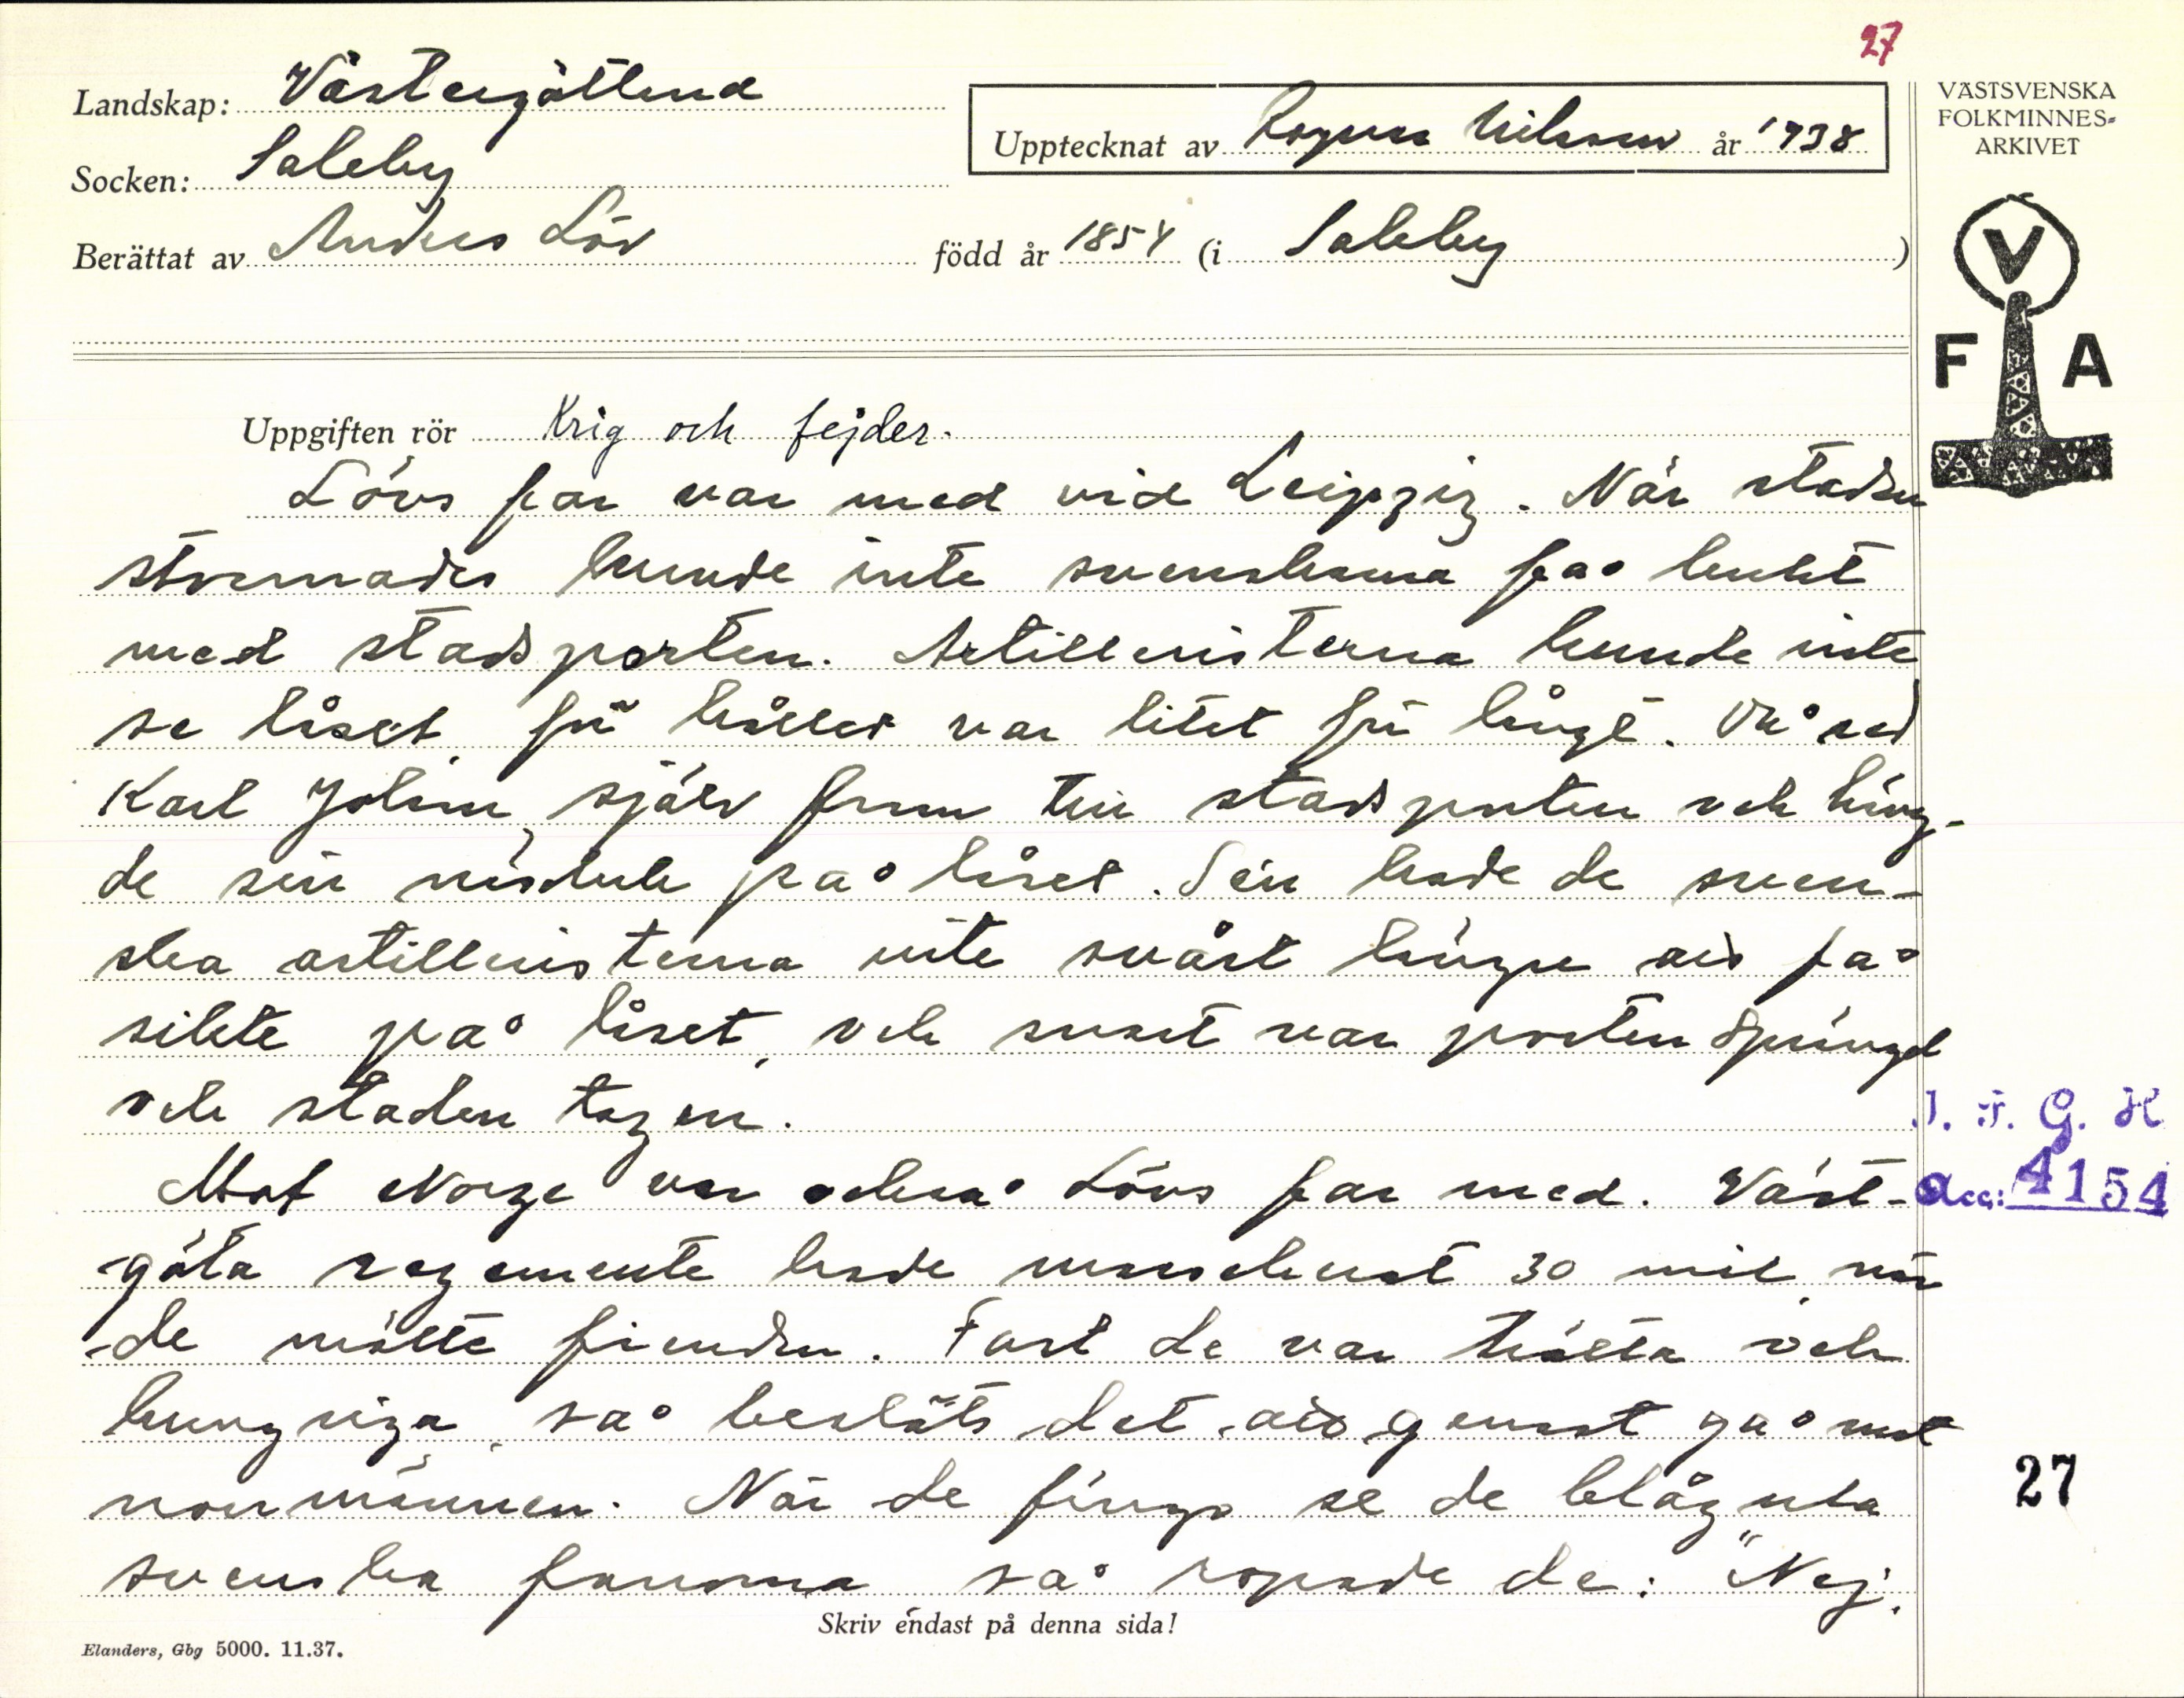 27
Landskap: Västergötland
Socken: Saleby
Berättat av Anders Löv född år 1854 (i Saleby)
Upptecknat av Ragnar Nilsson år 1938
VÄSTSVENSKA
FOLKMINNES-
ARKIVET
V
F A
Uppgiften rör Krig och fejder.
Lövs far var med vid Leipzig. När staden
stormades kunde inte svenskarna få bukt
med stadsporten. Artilleristerna kunde inte
se låset för hållet var litet för långt. Då red
Karl Johan själv fram till stadsporten och häng-
de sin näsduk på låset. Sen hade de sven-
ska artilleristerna inte svårt längre att få
sikte på låset, och snart var porten sprängd
och staden tagen.
Mot Norge var också Lövs far med. Väst-
göta regemente hade marscherat 30 mil, när
de mötte fienden. Fast de var trötta och
hungriga, så beslöts det att genast gå mot
norrmännen. När de fingo se de blågula
svenska fanorna så ropade de: "Nej,
I. F. G. H
Acc: 4154
27
Skriv endast på denna sida!
Elanders, Gbg 5000. 11.37.